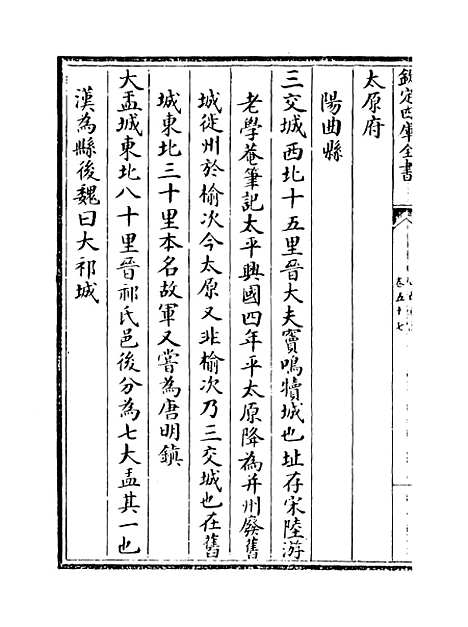 欽定四庫全書
卷五十七
太原府
陽曲縣
三交城西北十五里晉大夫竇鳴犢城也址存宋陸游
老學菴筆記太平興國四年平太原降為并州廢舊
城徙州於榆次今太原又非榆次乃三交城也在舊
城東北三十里本名故軍又嘗為唐明鎮
大盂城東北八十里晉祁氏邑後分為七大盂其一也
漢為縣後魏曰大祁城